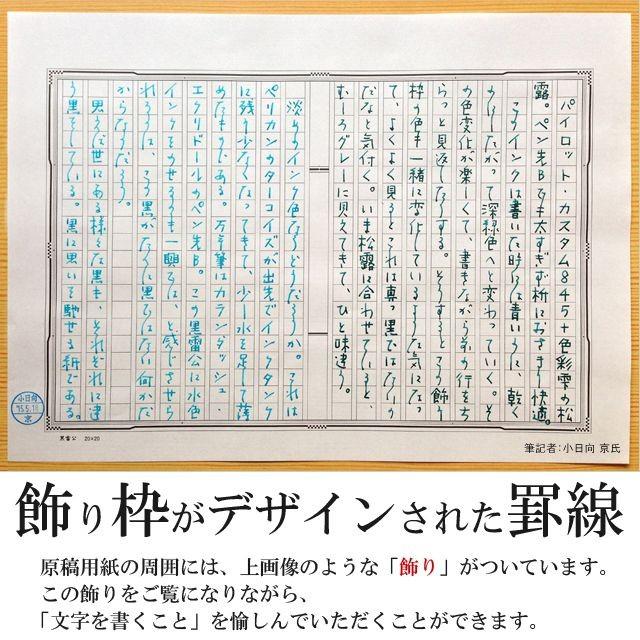 パイロット・カスタム845+色彩雫の松
露。ペン先Bでも太すぎず枡におさまり快適。
このインクは書いた時には青いのに、乾く
にしたがって深緑色へと変わっていく。そ
の色変化が楽しくて、書きながら前の行をち
らっと見返したりする。そうするとこの飾り
枠の色も一緒に変化しているような気になっ
て、よくよく見るとこれは真っ黒ではないん
だなと気付く。いま松露に合わせていると、
むしろグレーに見えてきて、ひと味違う。
淡めのインク色ならどうだろうか。これは
ペリカンのターコイズが出先でインクタンク
に残り少なくなってきて、少し水を足して薄
めたものである。万年筆はカランダッシュ・
エクリドールのペン先B。この黒雷公に水色
インクをのせるのも一興では、と感じさせら
れるのは、この黒がただ黒ではない何かだ
からなのだろう。
思えば世にある様々な黒も、それぞれに違
う黒をしている。黒に思いを馳せる紙である。
小日向
'15.5.18
京
黒雷公 20×20
筆記者:小日向 京氏
飾り枠がデザインされた罫線
原稿用紙の周囲には、上画像のような「飾り」がついています。
この飾りをご覧になりながら、
「文字を書くこと」を愉しんでいただくことができます。